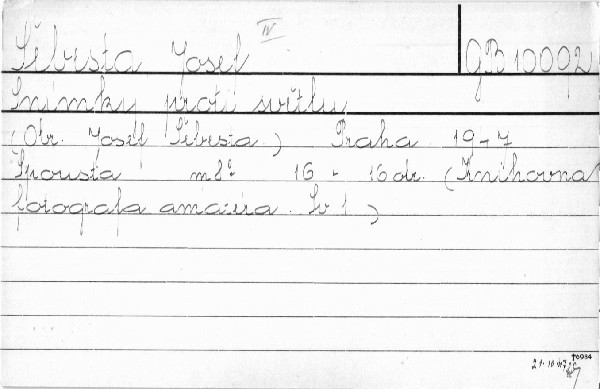 Šebesta Josef IV GB 10002
Snímky proti světlu
(Obr. Josef Šebesta) Praha 1947
Spousta m8° 16 - 16 obr. (Knihovna
fotografa amatéra. Sv 1)
76934
21.10.47